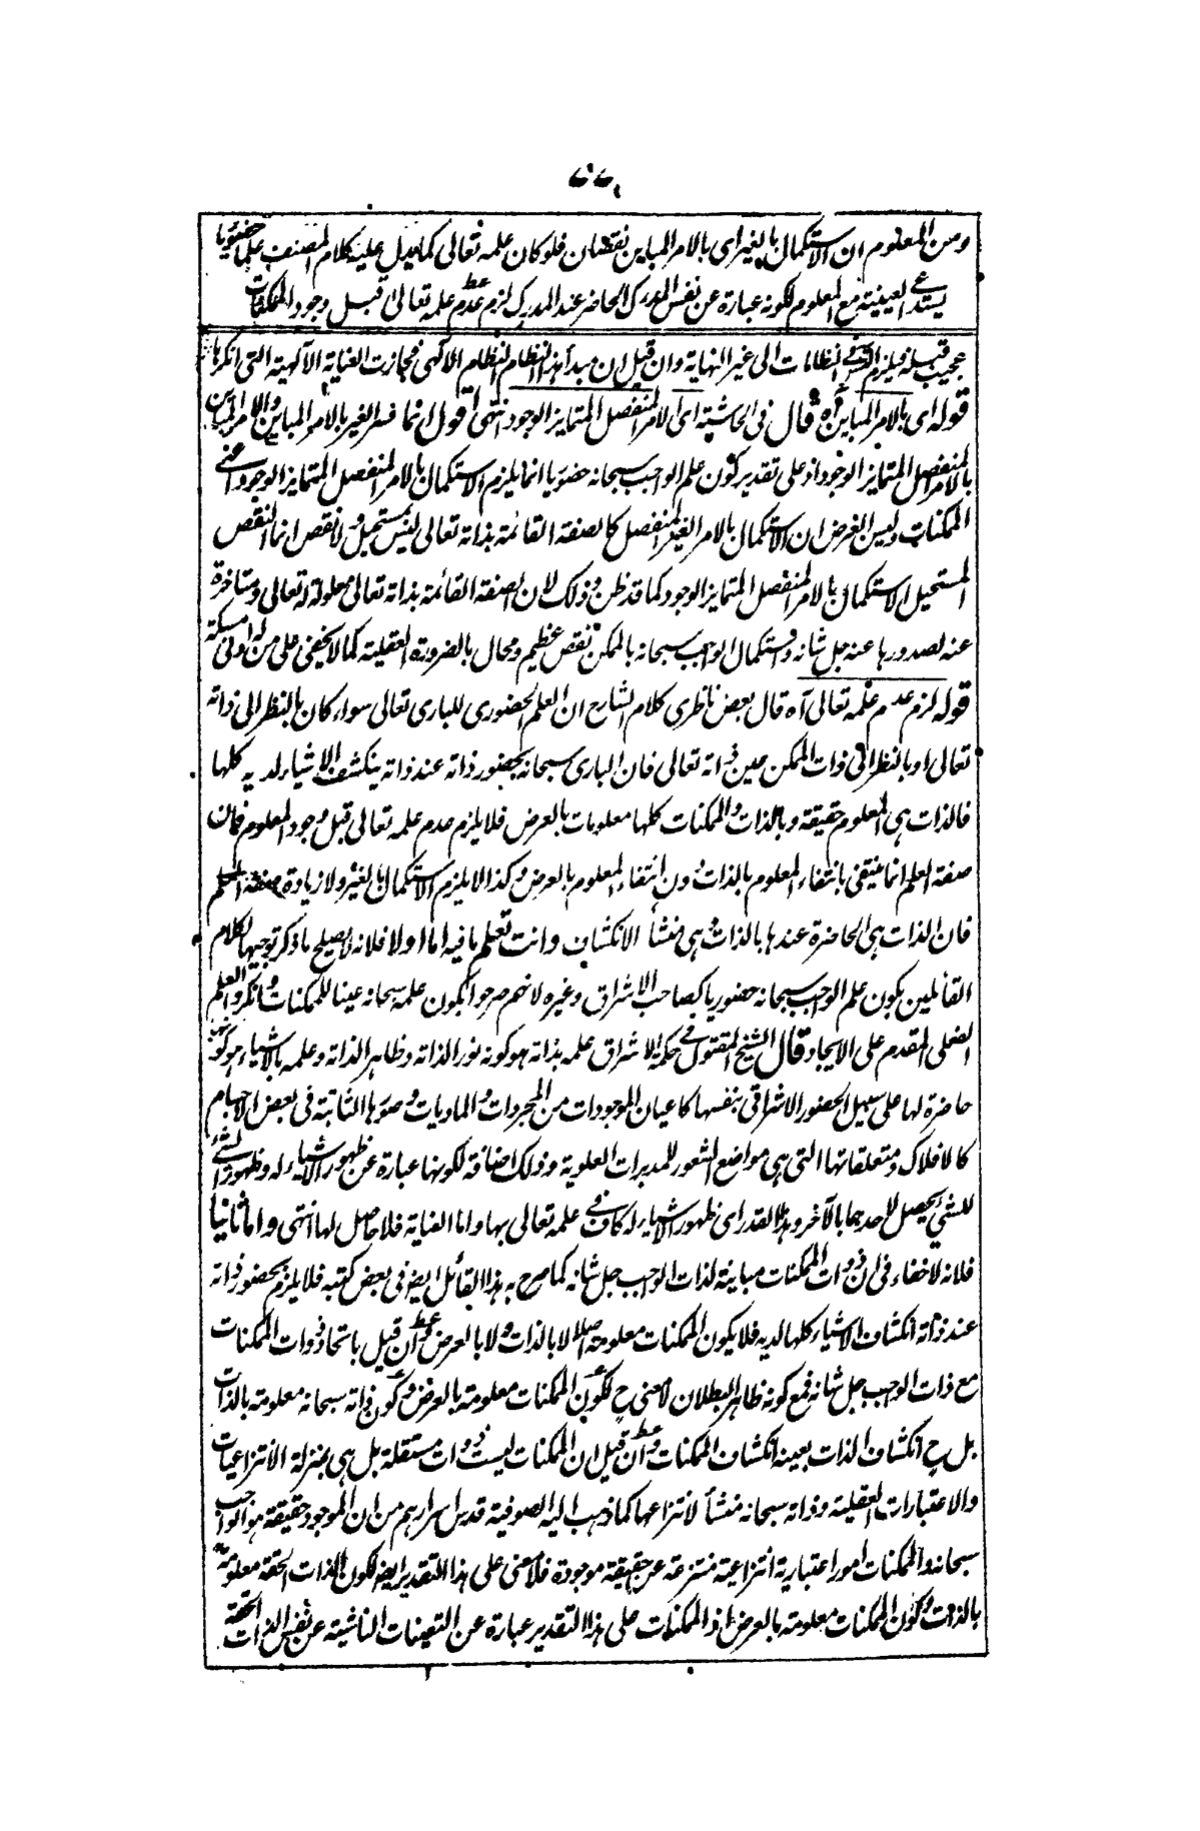 ومن المعلوم ان الاستكمال بالغير اى بالامر المباين نقصان فلو كان علمه تعالى كما يدل عليه كلام المصنف علما حضوريا
يستدعى العينية مع المعلوم لكونه عبارة عن نفس المدرك الحاضر عند المدرك لزم عدم علمه تعالى قبل وجود الممكنات
عجيب قبله ويلزم النظامات الى غير النهاية وان قيل ان مبدأ هذا النظام النظام الالهى فجازت العناية الآلهية التى انكرها
قوله اى بالامر المباين آه قال فى الحاشية اى الامر المنفصل المتمايز الوجود انتهى اقول انما فسر الغير بالامر المباين والامر المباين
بالامر المنفصل المتمايز الوجود اذ على تقدير كون علم الواجب سبحانه حضوريا انما يلزم الاستكمال بالامر المنفصل المتمايز الوجود اعنى
الممكنات وليس الغرض ان الاستكمال بالامر الغير المنفصل كالصفة القائمة بذاته تعالى ليس بمستحيل ولا نقص انما النقص
المستحيل الاستكمال بالامر المنفصل المتمايز الوجود كما قد ظن وذلك لان الصفة القائمة بذاته تعالى معلولة له تعالى ومتاخرة
عنه لصدورها عنه جل شانه واستكمال الواجب سبحانه بالممكن نقص عظيم ومحال بالضرورة العقلية كما لا يخفى على من له ادنى مسكة
قوله لزم عدم علمه تعالى آه قال بعض ناظرى كلام الشارح ان العلم الحضورى للبارى تعالى سواء كان بالنظر الى ذاته
تعالى او بالنظر الى ذات الممكن عين ذاته تعالى فان البارى سبحانه بحضور ذاته عند ذاته ينكشف الاشياء لديه كلها
فالذات هى المعلوم حقيقة وبالذات والممكنات كلها معلومات بالعرض فلا يلزم عدم علمه تعالى قبل وجود المعلوم فان
صفة العلم انما ينتفى بانتفاء المعلوم بالذات دون انتفاء المعلوم بالعرض وكذا لا يلزم الاستكمال بالغير ولا زيادة صفة العلم
فان الذات هى الحاضرة عندها بالذات وهى منشأ الانكشاف وانت تعلم ما فيه اما اولا فلانه لا يصلح ما ذكر توجيها لكلام
القائلين بكون علم الواجب سبحانه حضوريا كصاحب الاشراق وغيره لانهم صرحوا بكون علمه سبحانه عينا للممكنات وانكروا العلم
الفعلى المقدم على الايجاد قال الشيخ المقتول فى حكمة الاشراق علمه بذاته هو كونه نورا لذاته وظاهرا لذاته وعلمه بالاشياء هو كونها
حاضرة لها على سبيل الحضور الاشراقى بنفسها كاعيان الموجودات من المجردات والماديات وصورها الثابتة فى بعض الاجسام
كالافلاك ومتعلقاتها التى هى مواضع الشعور للمدبرات العلوية وذلك اضافة لكونها عبارة عن ظهور الاشياء له وظهور الشئ
للشئ يحصل لاحدهما بالآخر وهذا القدر اى ظهور الاشياء له كاف فى علمه تعالى بها واما العناية فلا حاصل لها انتهى واما ثانيا
فلانه لا خفاء فى ان ذوات الممكنات مباينة لذات الواجب جل شانه كما صرح به هذا القائل ايضا فى بعض كتبه فلا يلزم بحضور ذاته
عند ذاته انكشاف الاشياء كلها لديه فلا يكون الممكنات معلومة اصلا لا بالذات ولا بالعرض وان قيل باتحاد ذوات الممكنات
مع ذات الواجب جل شانه فمع كونه ظاهر البطلان لا معنى ح لكون الممكنات معلومة بالعرض وكون ذاته سبحانه معلومة بالذات
بل ح انكشاف الذات بعينه انكشاف الممكنات وان قيل ان الممكنات ليست ذوات مستقلة بل هى بمنزلة الانتزاعيات
والاعتبارات العقلية وذاته سبحانه منشأ لانتزاعها كما ذهب اليه الصوفية قدس اسرارهم من ان الموجود حقيقة هو الواجب
سبحانه والممكنات امور اعتبارية انتزاعية منتزعة عن حقيقة موجودة فلا معنى على هذا التقدير ايضا لكون الذات الحقة معلومة
بالذات وكون الممكنات معلومة بالعرض اذ الممكنات على هذا التقدير عبارة عن التعينات الناشية عن نفس الذات الحقة